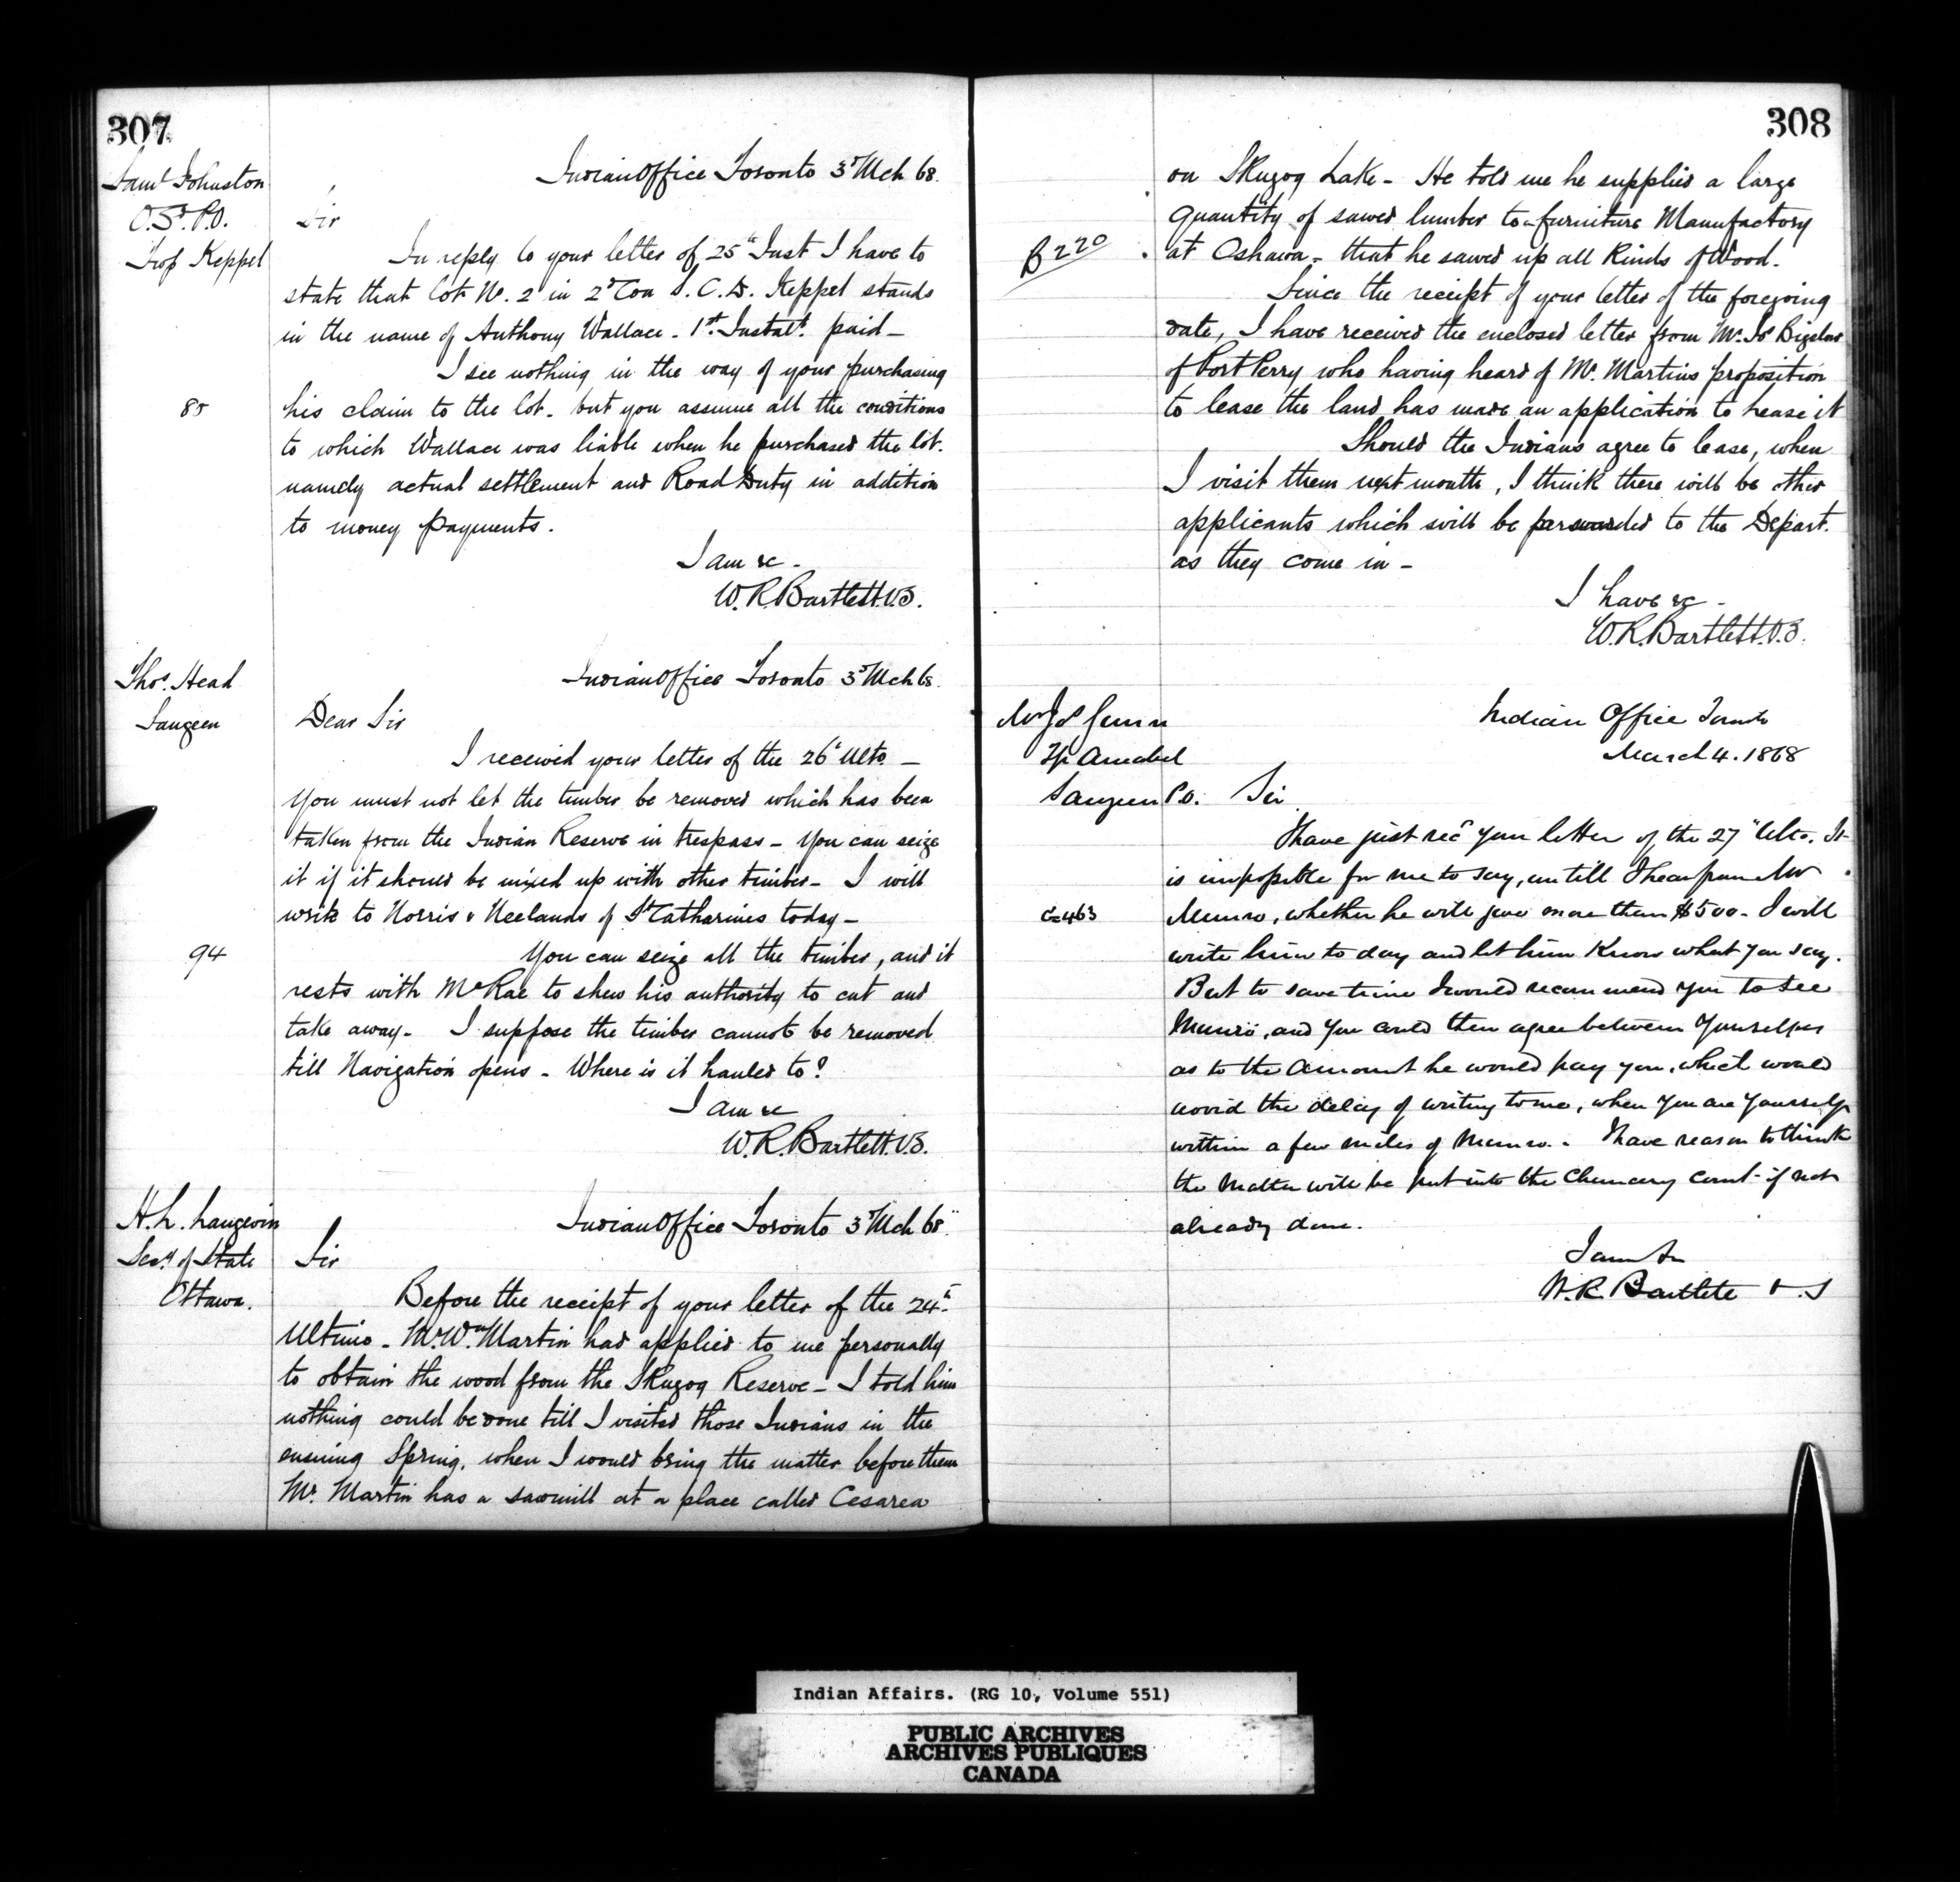 307
Saml Johnston
O.S. P.O.
Trop Keppel
Indian Office Toronto 3d Mch 68.
Sir
In reply to your letter of 25th Inst I have to
state that lot No. 2 in 2d Con S. C. D. Keppel stands
in the name of Anthony Wallace - 1st Instalt. paid -
I see nothing in the way of your purchasing
85
his claim to the lot - but you assume all the conditions
to which Wallace was liable when he purchased the lot.
namely actual settlement and Road Duty in addition
to money payments.
I am &c -
W.R. Bartlett V.S.
Thos. Head
Saugeen
Indian Office Toronto 3d Mch 68.
Dear Sir
I received your letter of the 26th Ulto -
You must not let the timber be removed which has been
taken from the Indian Reserve in trespass - You can seize
it if it should be mixed up with other timber - I will
write to Norris & Neelands of St Catharines today -
94
You can seize all the timber, and it
rests with McRae to shew his authority to cut and
take away - I suppose the timber cannot be removed
till Navigation opens - Where is it hauled to?
I am &c
W.R. Bartlett. V.S.
H. L. Langevin
Secy. of State
Ottawa.
Indian Office Toronto 3d Mch 68
Sir
Before the receipt of your letter of the 24th
Ultimo - Mr. Wm Martin had applied to me personally
to obtain the wood from the Skugog Reserve - I told him
nothing could be done till I visited those Indians in the
ensuing Spring, when I would bring the matter before them
Mr. Martin has a sawmill at a place called Cesarea
308
on Skugog Lake - He told me he supplied a large
quantity of sawed lumber to a furniture Manufactory
B 220
at Oshawa - that he sawed up all Kinds of Wood.
Since the receipt of your letter of the foregoing
date, I have received the enclosed letter from Mr. Js Bigelow
of Port Perry who having heard of Mr. Martins proposition
to lease the land has made an application to lease it
Should the Indians agree to lease, when
I visit them next month, I think there will be other
applicants which will be forwarded to the Depart.
as they come in -
I have &c -
W.R. Bartlett. V.S.
Mr Js Gunn
Tp Amabel
Saugeen P.O.
Indian Office Toronto
March 4. 1868
Sir
I have just recd your letter of the 27th Ulto. It
is impossible for me to say, untill I hear from Mr
G 463
Munro, whether he will give more than $500 - I will
write him to day and let him Know what you say.
But to save time I would recommend you to see
Munro, and you could then agree between Yourselves
as to the Amount he would pay you, which would
avoid the delay of writing to me, when you are Yourself
within a few miles of Munro - I have reason to think
the Matter will be put into the Chancery Court - if not
already done.
I am &c
W. R. Bartlett V. S
Indian Affairs. (RG 10, Volume 551)
PUBLIC ARCHIVES
ARCHIVES PUBLIQUES
CANADA